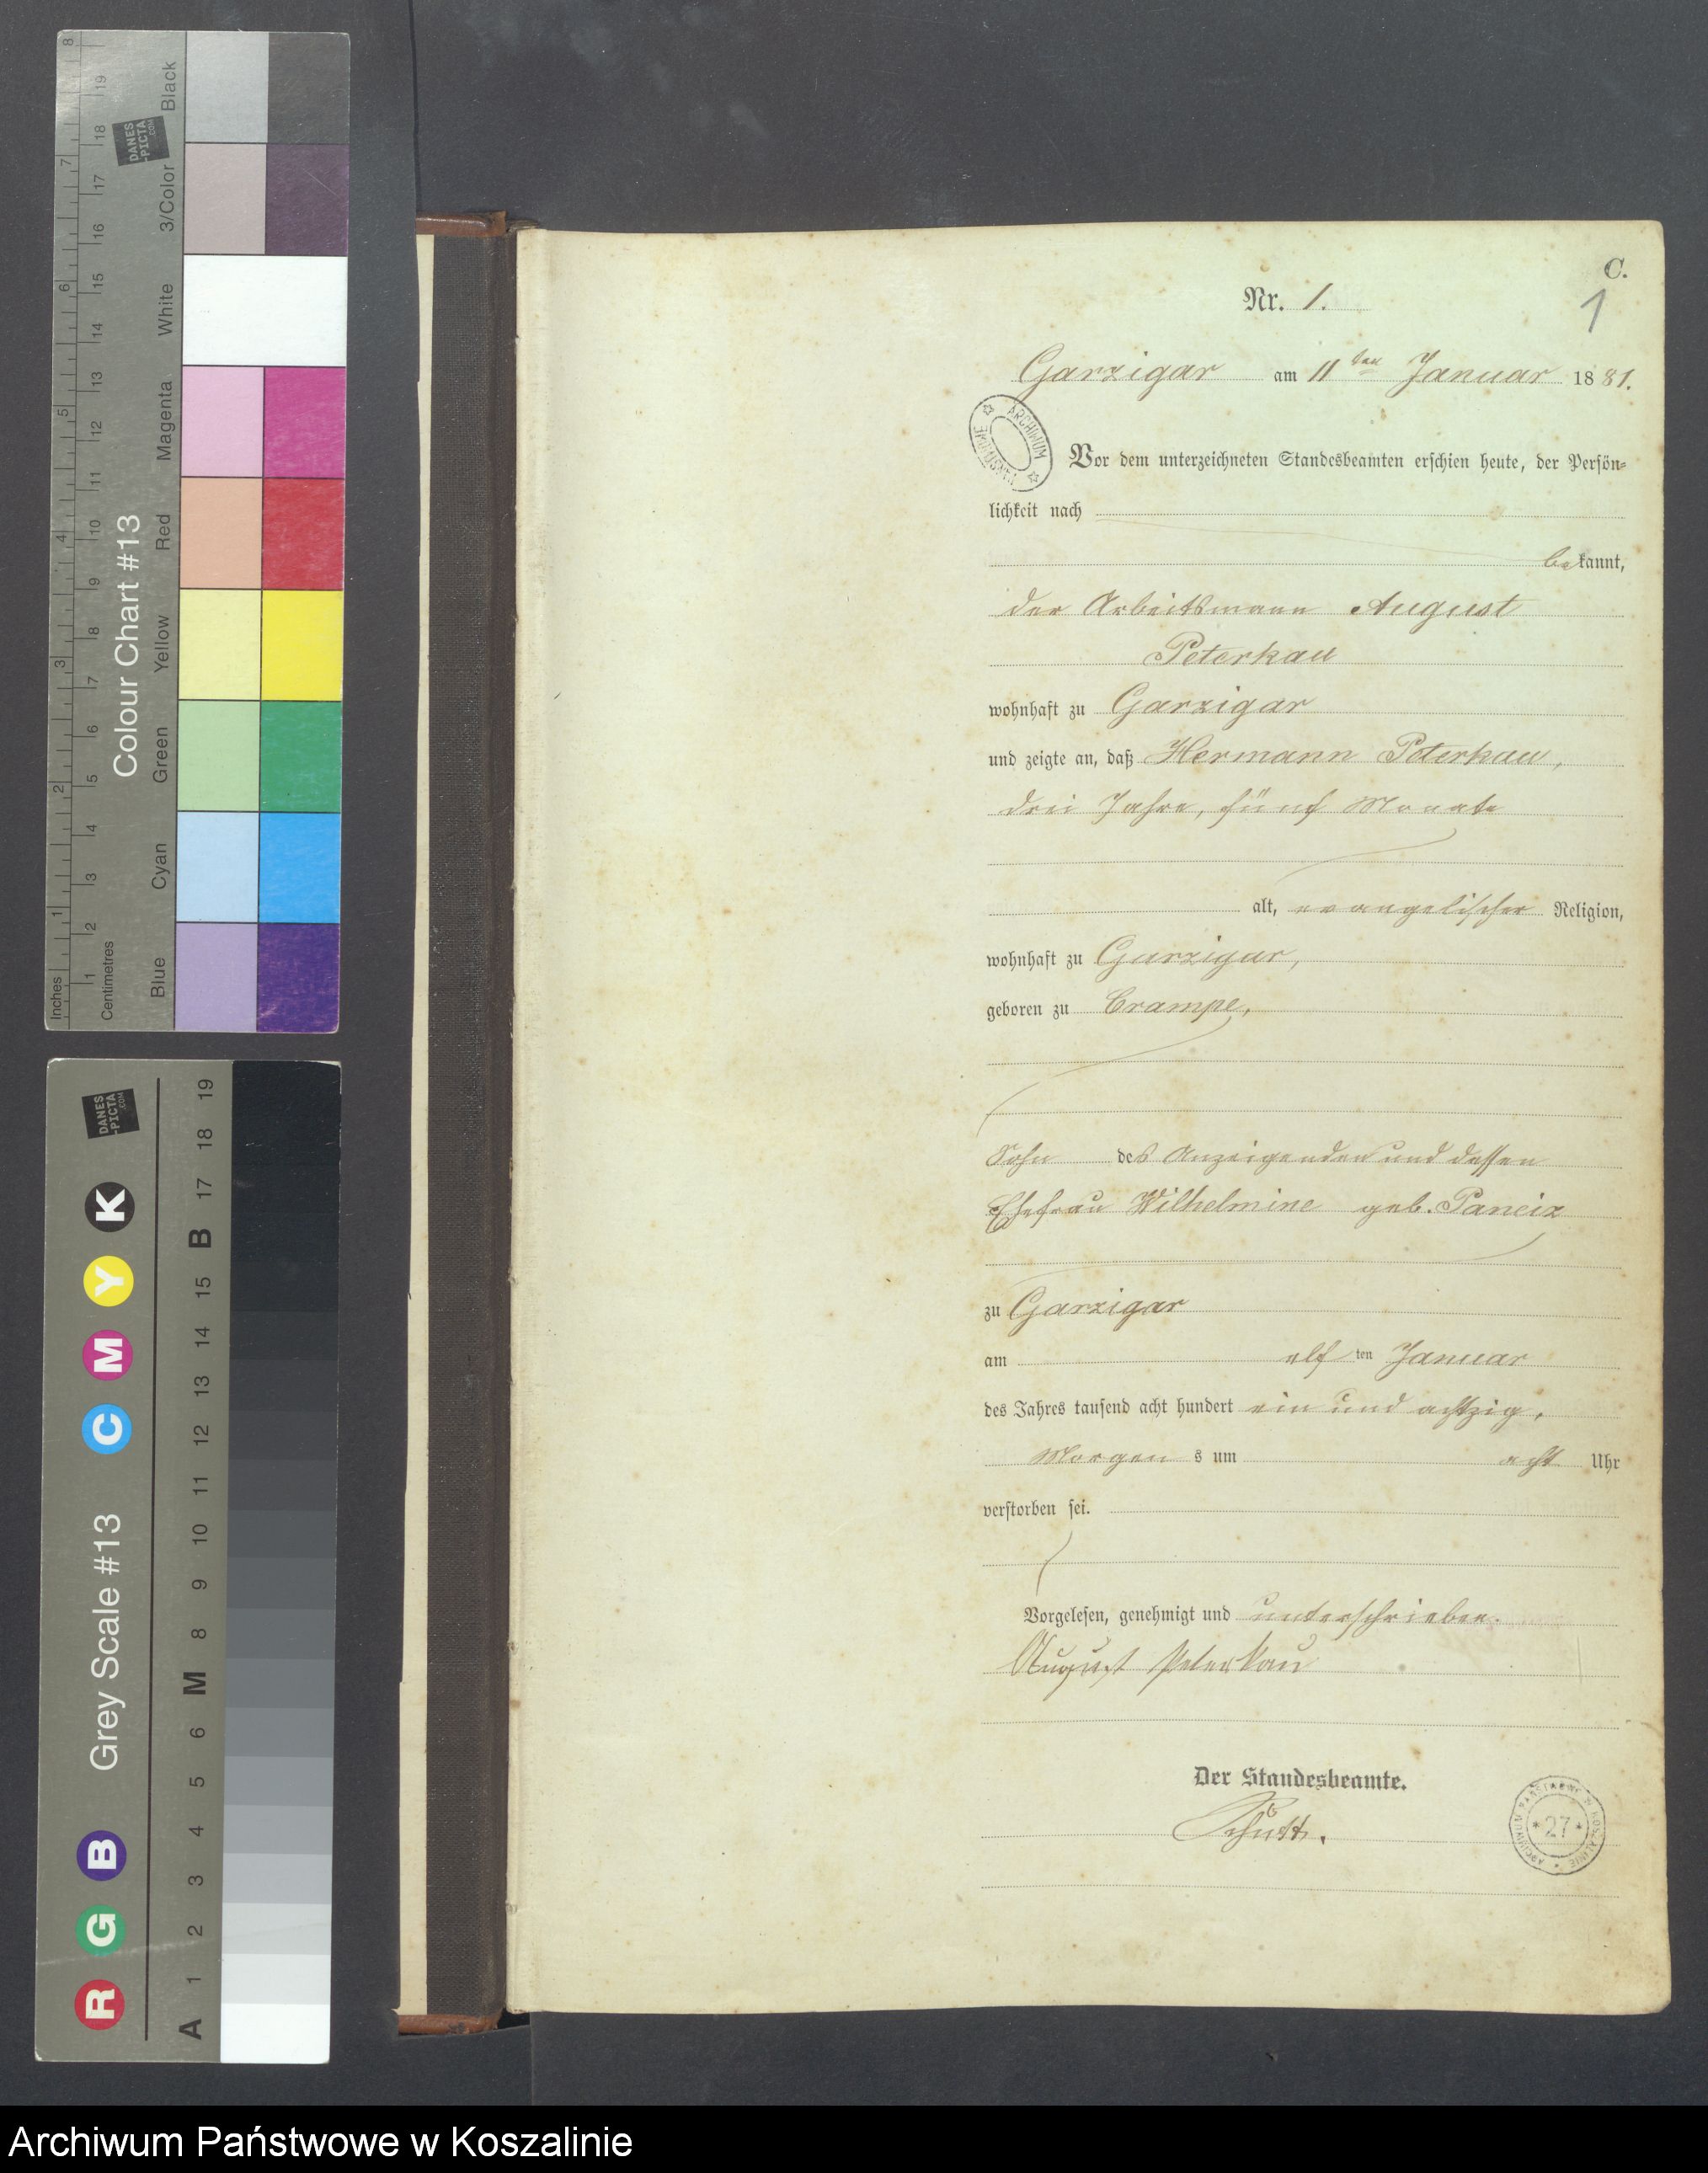 C.
Nr. 1.
1
Garzigar am 11ten Januar 1881.
Vor dem unterzeichneten Standesbeamten erschien heute, der Persön-
lichkeit nach
bekannt,
der Arbeitsmann August
Peterkau
wohnhaft zu Garzigar
und zeigte an, daß Hermann Peterkau,
drei Jahre, fünf Monate
alt, evangelischer Religion,
wohnhaft zu Garzigar,
geboren zu Crampe,
Sohn des Anzeigenden und dessen
Ehefrau Wilhelmine geb. Paneix
zu Garzigar
am elf ten Januar
des Jahres tausend acht hundert ein und achtzig,
Morgen s um acht Uhr
verstorben sei.
Vorgelesen, genehmigt und unterschrieben.
August Peterkau
Der Standesbeamte.
ARCHIWUM
ARCHIWUM PAŃSTWOWE W KOSZALINIE
*27*
Inches 1 2 3 4 5 6 7 8
Centimetres 1 2 3 4 5 6 7 8 9 10 11 12 13 14 15 16 17 18 19
Colour Chart #13
Blue Cyan Green Yellow Red Magenta White 3/Color Black
DANES
-PICTA
.COM
Grey Scale #13
R G B C M Y K
DANES
-PICTA
.COM
A 1 2 3 4 5 6 M 8 9 10 11 12 13 14 15 B 17 18 19
Archiwum Państwowe w Koszalinie